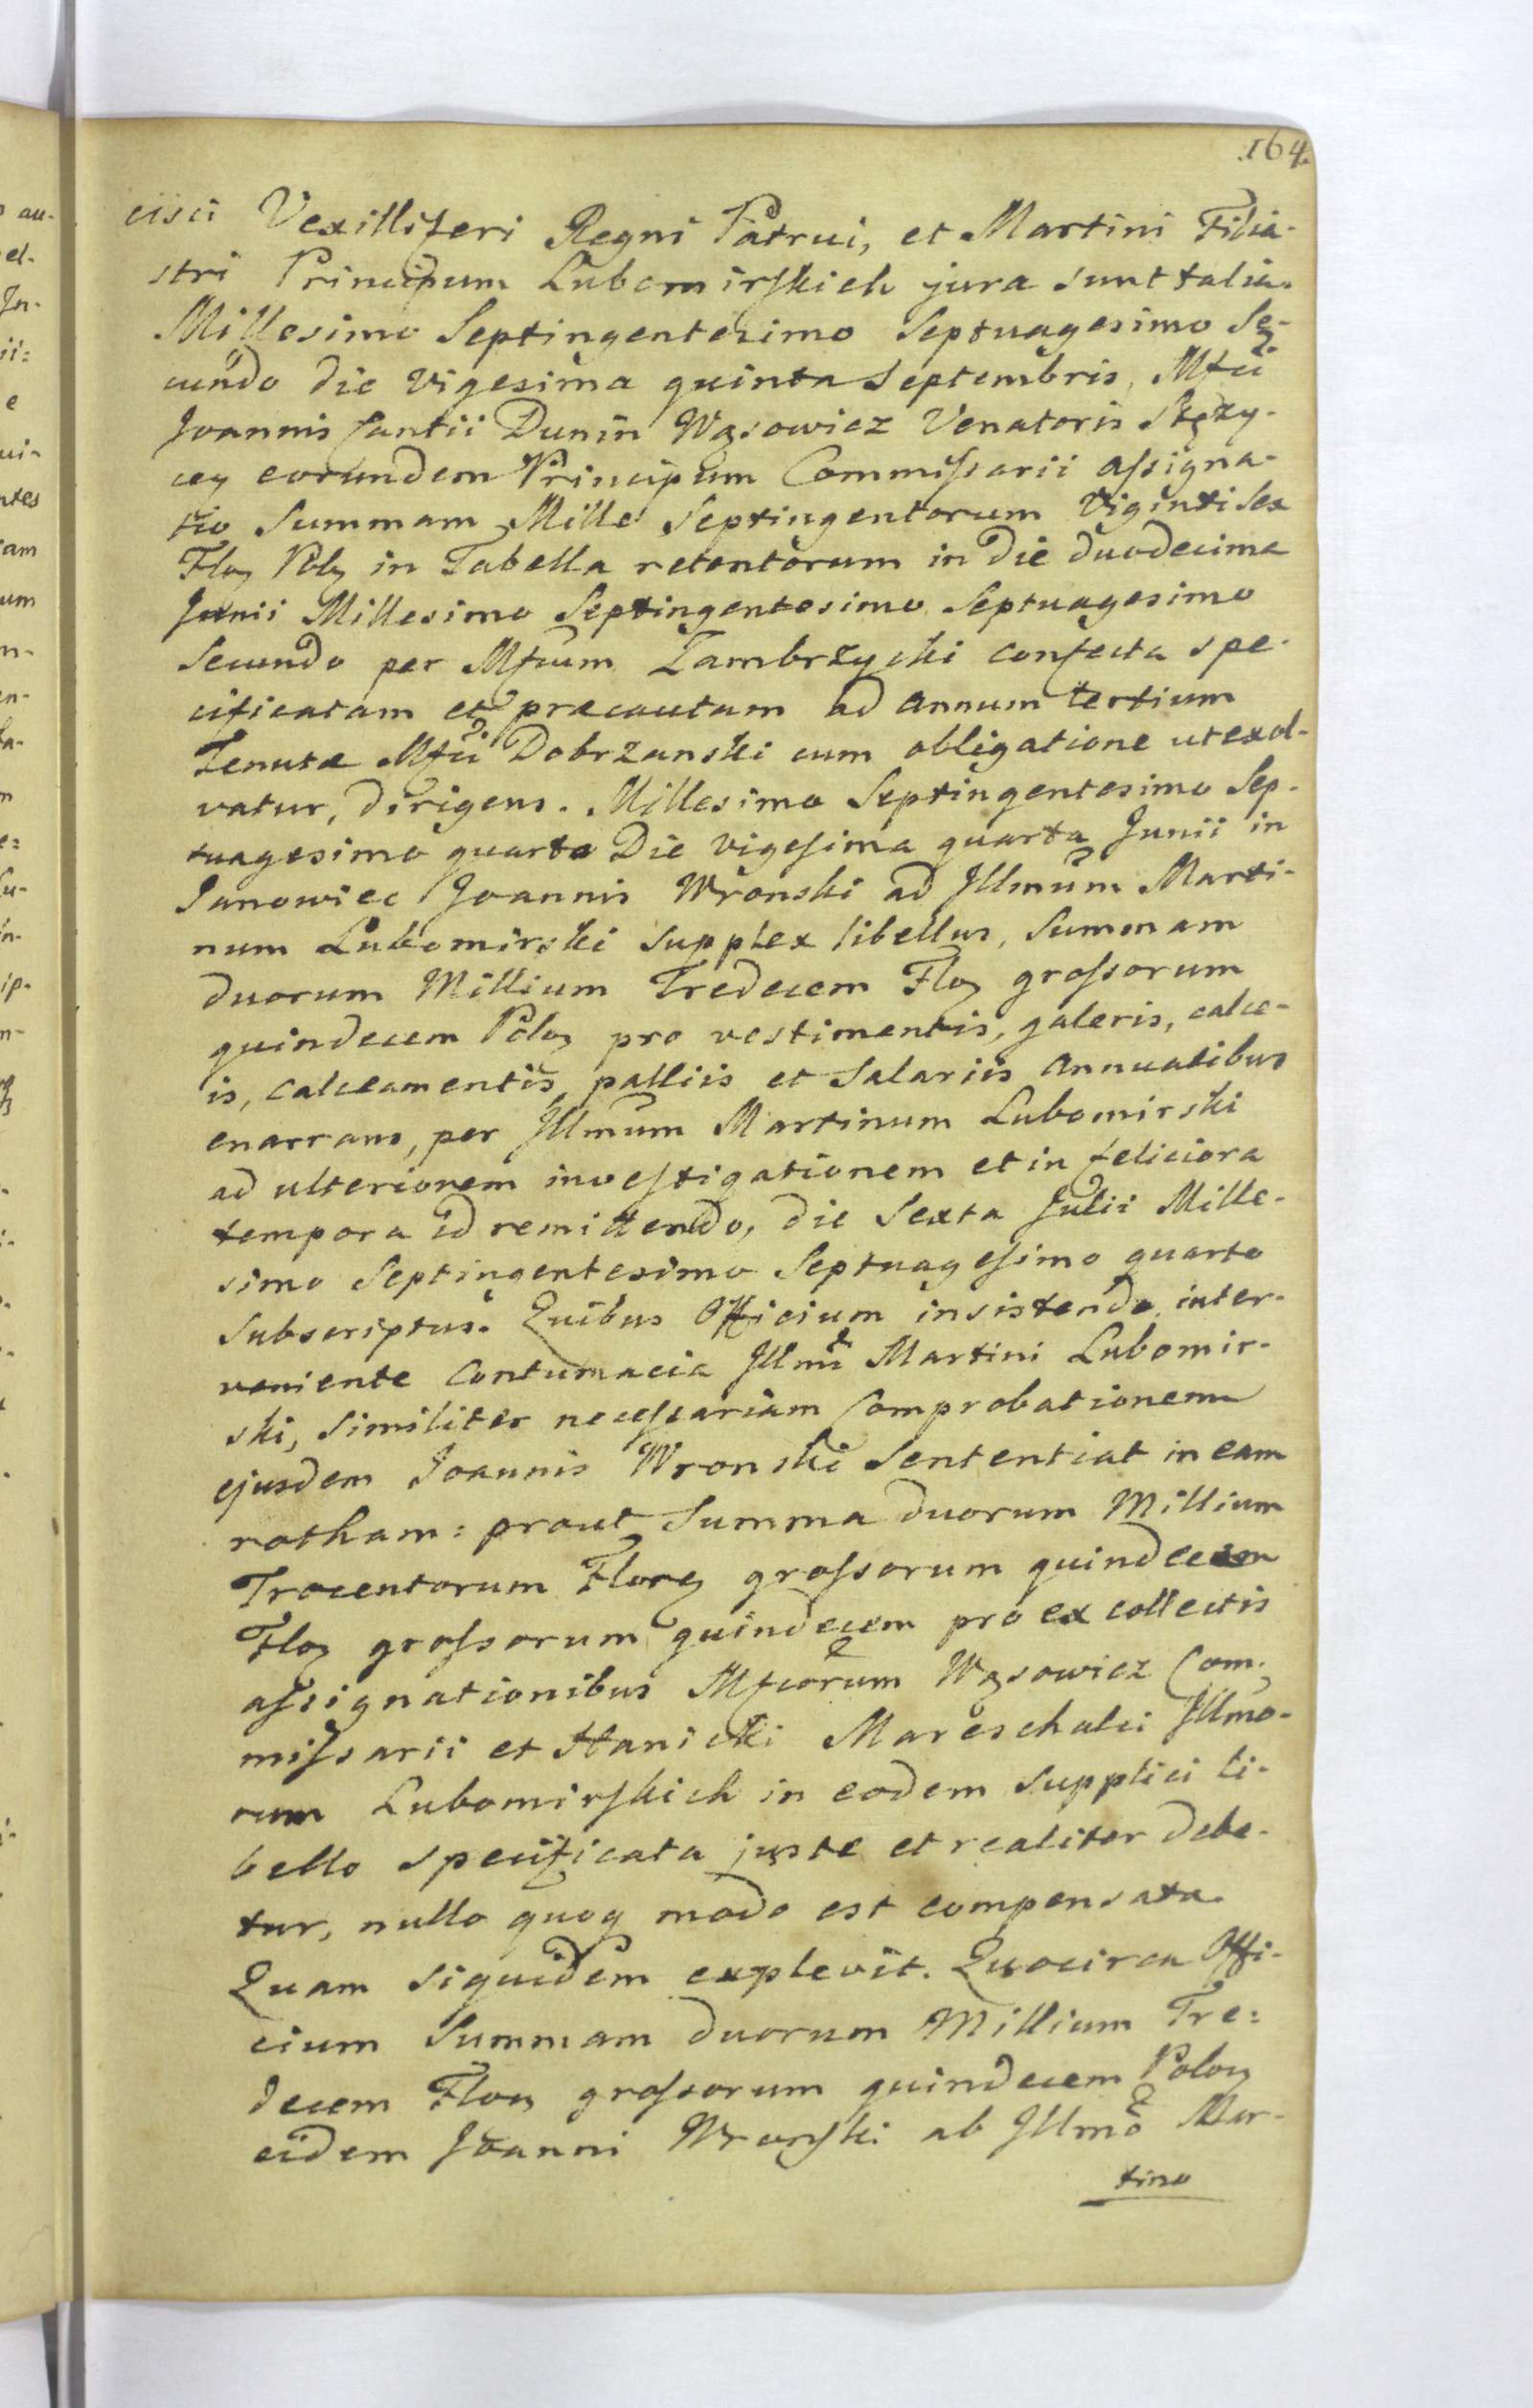 164.
cisci Vexilliferi Regni Patrui, et Martini Filia-
stri Principum Lubomirskich jura sunt talia.
Millesimo Septingentesimo Septuagesimo Se-
cundo die vigesima quinta Septembris, Mfci
Joannis Cantii Dunin Wąsowicz Venatoris Stęzy-
cen eorundem Principum Commissarii assigna-
tio Summam Mille Septingentorum Viginti Sex
Flor Pol in Tabella retentorum in die duodecima
Junii Millesimo Septingentesimo Septuagesimo
Secundo per Mfcum Zambrzycki confecta spe-
cificatam et praecautam ad annum tertium
Tenutæ Mfci Dobrzanski cum obligatione ut exol-
vatur, dirigens. Millesimo Septingentesimo Sep-
tuagesimo quarto Die vigesima quarta Junii in
Janowiec Joannis Wronski ad Illmum Marti-
num Lubomirski supplex libellus, Summam
duorum Millium Tredecem Flor grossorum
quindecem Polon pro vestimentis, galeris, calce-
is, calceamentis, palliis et Salariis annualibus
enarrans, per Illmum Martinum Lubomirski
ad ulteriorem investigationem et in feliciora
tempora id remittendo, die Sexta Julii Mille-
simo Septingentesimo Septuagesimo quarto
subscriptus. Quibus Officium insistendo, inter-
veniente Contumacia Illmi Martini Lubomir-
ski, similiter necessariam Comprobationem
ejusdem Joannis Wronski Sententiat in eam
rotham: prout Summa duorum Millium
Trecentorum Floren grossorum quindecem
Flor grossorum quindecem pro ex collectis
assignationibus Mfcorum Wąsowicz Com-
missarii et Hanicki Mareschalci Illmo-
rum Lubomirskich in eodem supplici li-
bello specificata juste et realiter debe-
tur, nullo quoq modo est compensata.
Quam siquidem explevit. Quocirca Offi-
cium Summam duorum Millium Tre=
decem Flor grossorum quindecem Polon
eidem Joanni Wronski ab Illmo Mar-
tino